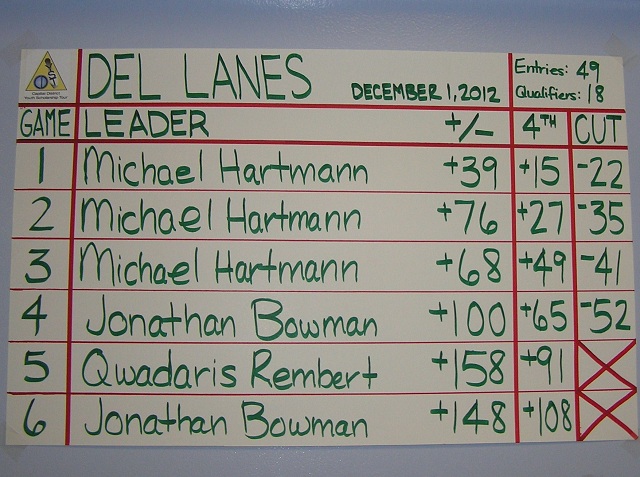 DEL LANES DECEMBER 1, 2012
Entries: 49
Qualifiers: 18
Capital District
Youth Scholarship Tour
GAME LEADER +/- 4TH CUT
1 Michael Hartmann +39 +15 -22
2 Michael Hartmann +76 +27 -35
3 Michael Hartmann +68 +49 -41
4 Jonathan Bowman +100 +65 -52
5 Qwadaris Rembert +158 +91
6 Jonathan Bowman +148 +108